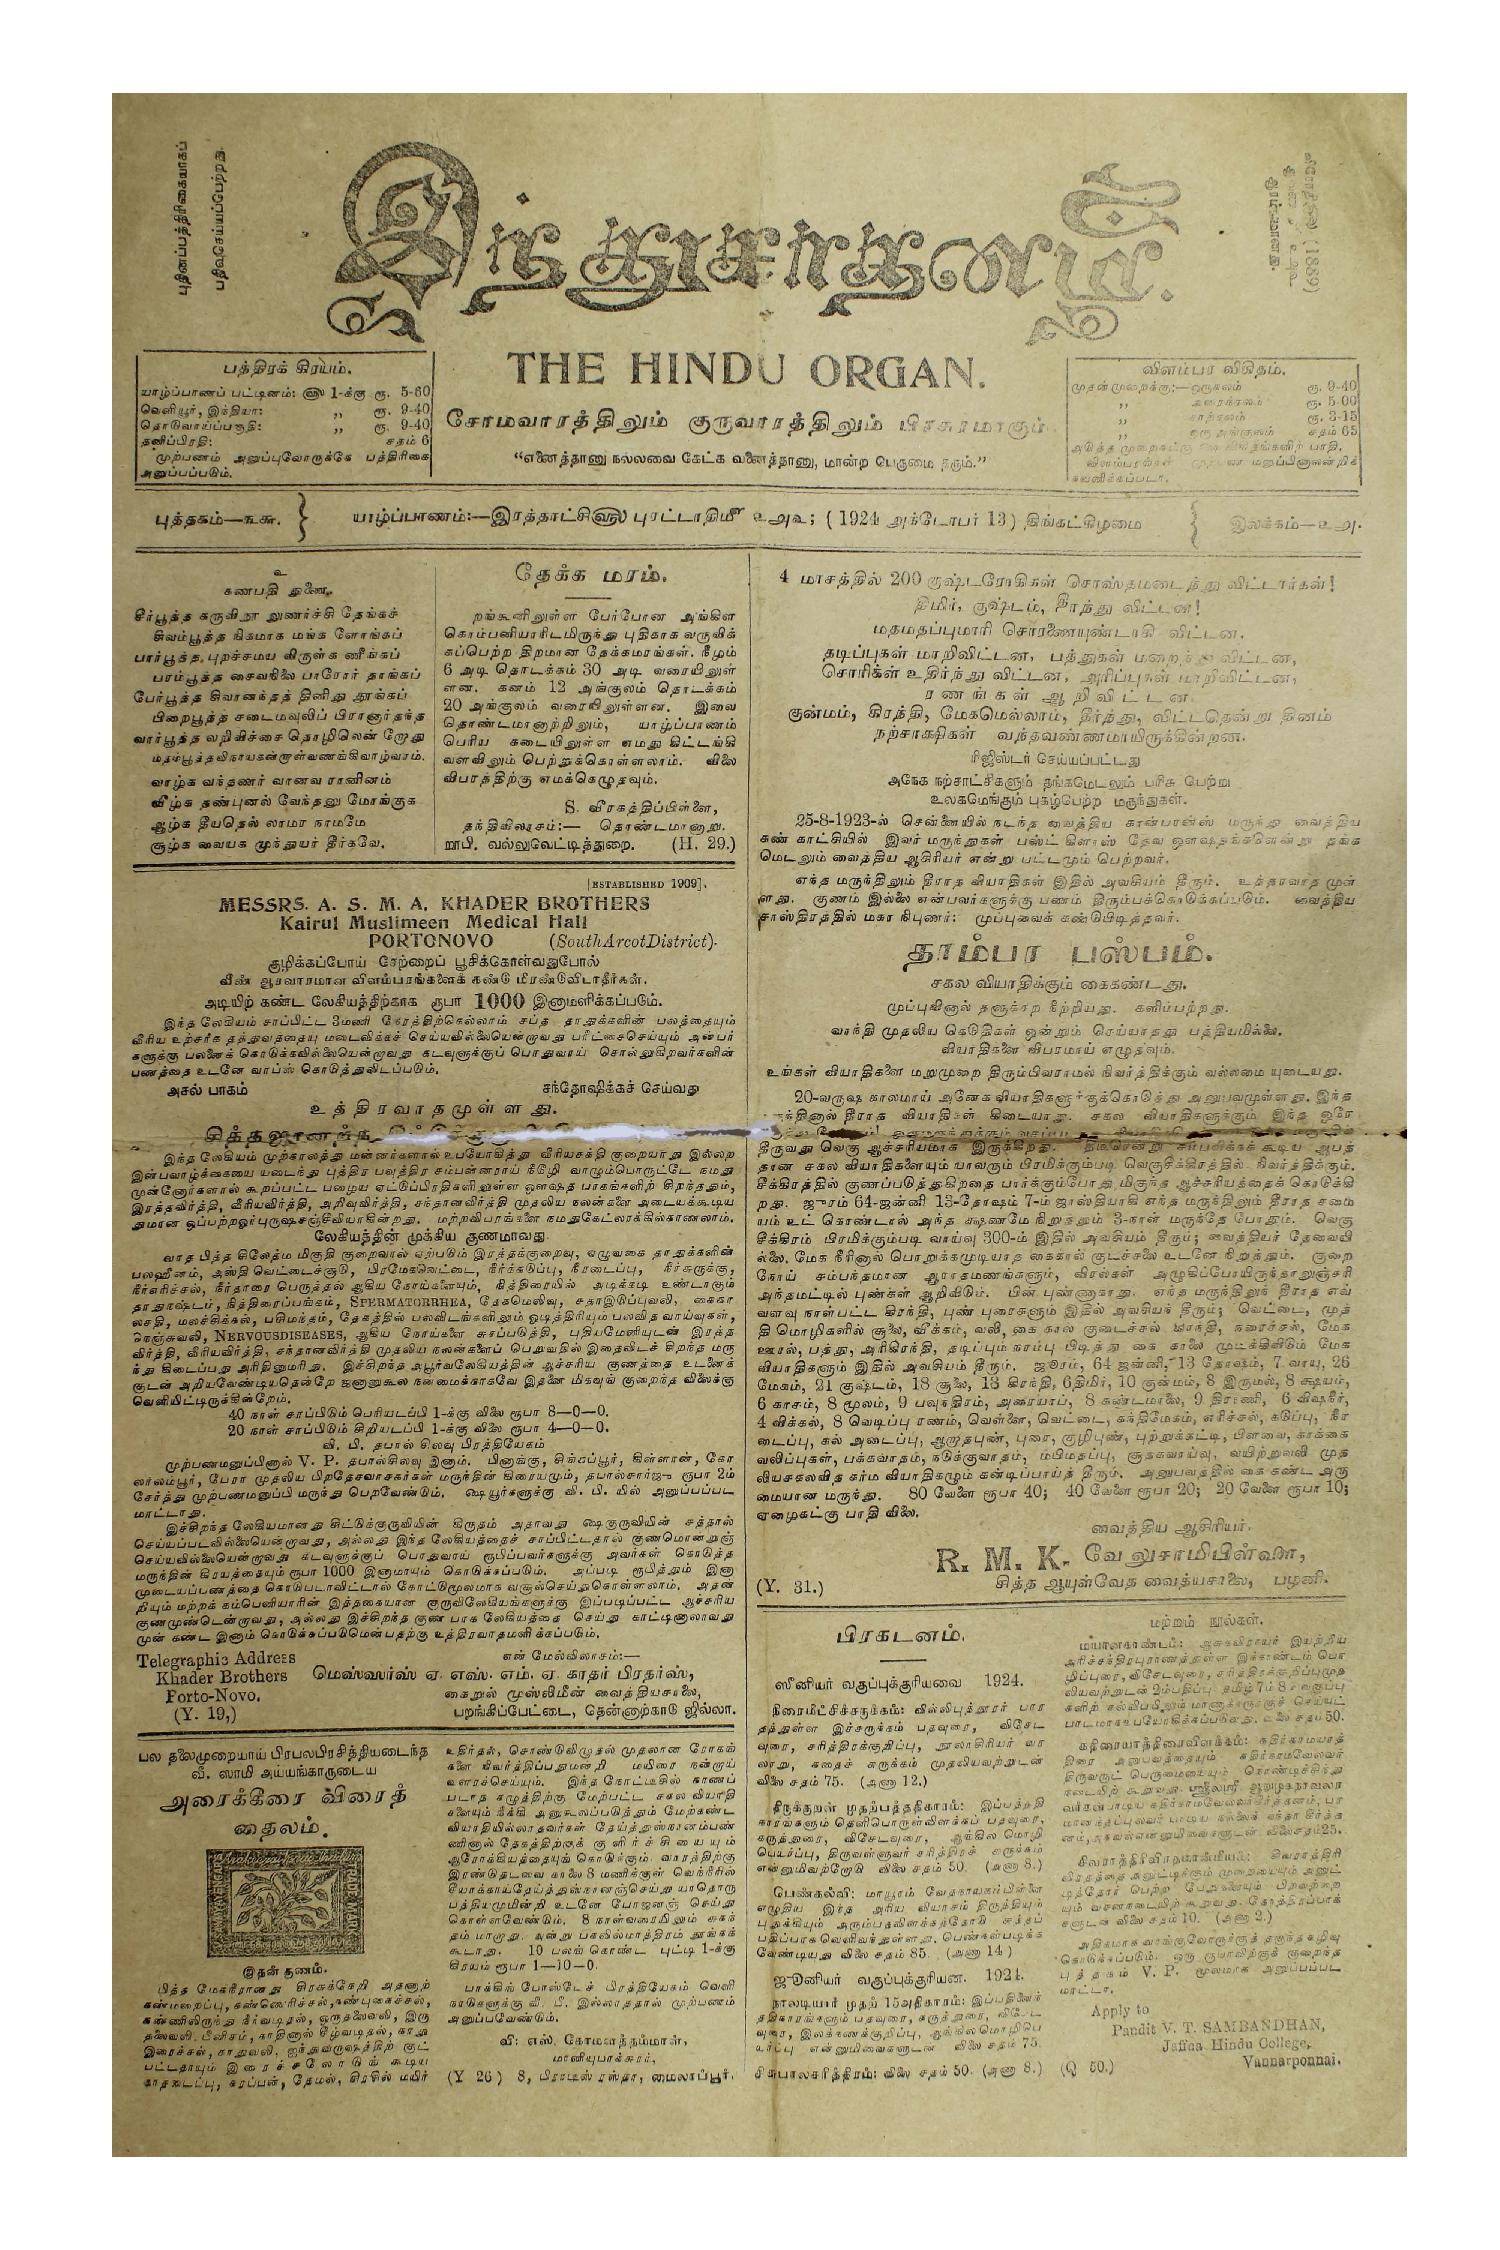 புதினப்பத்திரிகையாகப்
பதிவுசெய்யப்பெற்றது.
இந்துசாதனம்.
THE HINDU ORGAN.
பத்திரக் கிரயம்.
யாழ்ப்பாணப் பட்டினம்: ௵ 1-க்கு ரூ. 5-60
வெளியூர், இந்தியா: ,, ரூ. 9-40
தொடுவாய்ப்பகுதி: ,, ரூ. 9-40
தனிப்பிரதி: சதம் 6
முற்பணம் அனுப்புவோருக்கே பத்திரிகை
அனுப்பப்படும்.
சோமவாரத்திலும் குருவாரத்திலும் பிரசுரமாகும்.
“எனைத்தானு நல்லவை கேட்க வனைத்தானு, மான்ற பெருமை தரும்.”
விளம்பர விகிதம்.
முதன்முறைக்கு:—ஒருகலம் ரூ. 9-40
,, அரைக்கலம் ரூ. 5-00
,, காற்கலம் ரூ. 3-15
,, ஒரு அங்குலம் சதம் 65
புத்தகம்—௩௬.
யாழ்ப்பாணம்:—இரத்தாட்சி௵ புரட்டாதி௴ ௨௮௳; (1924 அக்டோபர் 13) திங்கட்கிழமை
இலக்கம்—௨௮.
உ
கணபதி துணை.
சீர்பூத்த கருவிநூ லுணர்ச்சி தேங்கச்
சிவம்பூத்த நிகமாக மங்க ளோங்கப்
பார்பூத்த புறச்சமய விருள்க ணீங்கப்
பரம்பூத்த சைவநிலை பாரோர் தாங்கப்
பேர்பூத்த சிவானந்தத் தினிது தூங்கப்
பிறைபூத்த சடைமவுலிப் பிரானார்தந்த
வார்பூத்த வறிவிச்சை தொழிலென் றோது
மதம்பூத்தவிநாயகன்றாள்வணங்கிவாழ்வாம்.
வாழ்க வந்தணர் வானவ ரானினம்
வீழ்க தண்புனல் வேந்தனு மோங்குக
ஆழ்க தீயதெல் லாமர நாமமே
சூழ்க வையக முந்துயர் தீர்கவே.
தேக்க மரம்.
றங்கூனிலுள்ள பேர்போன அங்கிள
கொம்பனியாரிடமிருந்து புதிகாக வருவிக்
கப்பெற்ற திறமான தேக்கமரங்கள். நீழம்
6 அடி தொடக்கம் 30 அடி வரையிலுள்
ளன. கனம் 12 அங்குலம் தொடக்கம்
20 அங்குலம் வரையிலுள்ளன. இவை
தொண்டமானாற்றிலும், யாழ்ப்பாணம்
பெரிய கடையிலுள்ள எமது கிட்டங்கி
வளவிலும் பெற்றுக்கொள்ளலாம். விலை
விபரத்திற்கு எமக்கெழுதவும்.
S. வீரகத்திப்பிள்ளை,
தந்திவிலாசம்:— தொண்டமானாறு.
றூபி. வல்லுவெட்டித்துறை. (H. 29.)
[ESTABLISHED 1909].
MESSRS. A. S. M. A. KHADER BROTHERS
Kairul Muslimeen Medical Hall
PORTONOVO (South Arcot District).
குழிக்கப்போய் சேற்றைப் பூசிக்கொள்வதுபோல்
வீண் ஆரவாரமான விளம்பரங்களைக் கண்டு மிரண்டுவிடாதீர்கள்.
அடியிற் கண்ட லேகியத்திற்காக ரூபா 1000 இனாமளிக்கப்படும்.
இந்த லேகியம் சாப்பிட்ட 3மணி நேரத்திற்கெல்லாம் சப்த தாதுக்களின் பலத்தையும்
வீரிய உற்சரிக தத்துவத்தையு மடைவிக்கச் செய்யவில்லையென்றாவது பரீட்சைசெய்யும் அன்பர்
களுக்கு பலனைக் கொடுக்கவில்லையென்றாவது கடவுளுக்குப் பொதுவாய் சொல்லுகிறவர்களின்
பணத்தை உடனே வாப்ஸ் கொடுத்துவிடப்படும்.
அசல் பாகம் சந்தோஷிக்கச் செய்வது
உத்திரவாதமுள்ளது.
இந்த லேகியம் முற்காலத்து மன்னர்களால் உபயோகித்து வீரியசக்தி குறையாது இல்லற
இன்பவாழ்க்கையை யடைந்து புத்திர பவுத்திர சம்பன்னராய் நீடூழி வாழும்பொருட்டே நமது
முன்னோர்களால் கூறப்பட்ட பழைய ஏட்டுப்பிரதிகளிலுள்ள ஔஷத பாகங்களிற் சிறந்ததும்,
இரத்தவிர்த்தி, வீரியவிர்த்தி, அறிவுவிர்த்தி, சந்தானவிர்த்தி முதலிய நலன்களை அடையக்கூடிய
துமான ஒப்பற்றஓர்புருஷசஞ்சீவியாகின்றது. மற்றவிபரங்களை நமதுகேட்லாக்கில்காணலாம்.
லேகியத்தின் முக்கிய குணமாவது.
வாத பித்த சிலேத்ம மிகுதி குறைவால் ஏற்படும் இரத்தக்குறைவு, எழுவகை தாதுக்களின்
பலஹீனம், அஸ்தி வெட்டைச்சூடு, பிரமேகவெட்டை, நீர்க்கடுப்பு, நீரடைப்பு, நீர்சுருக்கு,
நீர்எரிச்சல், நீர்தாரை பெருத்தல் ஆகிய நோய்களையும், நித்திரையில் அடிக்கடி உண்டாகும்
தாதுநஷ்டம், நித்திரைப்பங்கம், SPERMATORRHEA, தேகமெலிவு, சதாஇடுப்புவலி, கைகா
லசதி, மலச்சிக்கல், பசிமந்தம், தேகத்தில் பலவிடங்களிலும் ஓடித்திரியும் பலவித வாய்வுகள்,
நெஞ்சுவலி, NERVOUSDISEASES, ஆகிய நோய்களை சுரப்படுத்தி, புதியமேனியுடன் இரத்த
விர்த்தி, வீரியவிர்த்தி, சந்தானவிர்த்தி முதலிய நலன்களைப் பெறுவதில் இதைவிடச் சிறந்த மரு
ந்து கிடைப்பது அரிதினுமரிது. இச்சிறந்த அபூர்வலேகியத்தின் ஆச்சரிய குணத்தை உடனைக்
குடன் அறியவேண்டியதென்றே ஜனானுகூல நன்மைக்காகவே இதனை மிகவுங் குறைந்த விலைக்கு
வெளியிட்டிருக்கின்றேம்.
40 நாள் சாப்பிடும் பெரியடப்பி 1-க்கு விலை ரூபா 8—0—0.
20 நாள் சாப்பிடும் சிறியடப்பி 1-க்கு விலை ரூபா 4—0—0.
வி. பி. தபால் சிலவு பிரத்தியேகம்
முற்பணமனுப்பினால் V. P. தபால்சிலவு இனாம். பினாங்கு, சிங்கப்பூர், கிள்ளான், கோ
லாலம்பூர், பேரா முதலிய பிறதேசவாசகர்கள் மருந்தின் கிரையமும், தபால்சார்ஜு ரூபா 2ம்
சேர்த்து முற்பணமனுப்பி மருந்து பெறவேண்டும். ஷையூர்களுக்கு வி. பி. யில் அனுப்பப்பட
மாட்டாது.
இச்சிறந்த லேகியமானது சிட்டுக்குருவியின் கிருதம் அதாவது ஷைகுருவியின் சத்தால்
செய்யப்படவில்லையென்றாவது, அல்லது இந்த லேகியத்தைச் சாப்பிட்டதால் குணமொன்றுஞ்
செய்யவில்லையென்றாவது கடவுளுக்குப் பொதுவாய் ரூபிப்பவர்களுக்கு அவர்கள் கொடுத்த
மருந்தின் கிரயத்தையும் ரூபா 1000 இனாமாயும் கொடுக்கப்படும். அப்படி ரூபித்தும் இனா
முடையப்பணத்தை கொடுபடாவிட்டால் கோட்டுமூலமாக வசூல்செய்துகொள்ளலாம். அதன்
றியும் மற்றக் கம்பெனியாரின் இத்தகையான குருவிலேகியங்களுக்கு இப்படிப்பட்ட ஆச்சரிய
குணமுண்டென்றாவது, அல்லது இச்சிறந்த குண பாக லேகியத்தை செய்து காட்டினாலாவது
முன் கண்ட இனாம் கொடுக்கப்படுமென்பதற்கு உத்திரவாதமளிக்கப்படும்.
Telegraphic Address
Khader Brothers
Porto-Novo.
(Y. 19,)
என் மேல்விலாசம்:—
மெஸ்ஸர்ஸ் ஏ. எஸ். எம். ஏ. காதர் பிரதர்ஸ்,
கைறுல் முஸ்லிமீன் வைத்தியசாலை,
பறங்கிப்பேட்டை, தென்னாற்காடு ஜில்லா.
பல தலைமுறையாய் பிரபலபிரசித்தியடைந்த
வீ. ஸாமி அய்யங்காருடைய
அரைக்கீரை விரைத்
தைலம்.
இதன் குணம்.
பித்த மேகநீரானது சிரசுக்கேறி அதனாற்
கண்மறைப்பு, கண்ணெரிச்சல், கண்புகைச்சல்,
கண்ணிலிருந்து நீர்வடிதல், ஒருதலைவலி, இரு
தலைவலி, பீனிசம், காதினால் சீழ்வடிதல், காது
இரைச்சல், காதுவலி, ஐந்துவருஷத்திற் குட்
பட்டதாயும் இரைச்சலோடுங் கூடிய
காதடைப்பு, கரப்பன், தேமல், சிரசில் மயிர்
உதிர்தல், சொண்டுவிழுதல் முதலான ரோகங்
களை நிவர்த்திப்பதுமன்றி மயிரை நன்றாய்
வளரச்செய்யும். இந்த நோட்டீசில் காணப்
படாத கழுத்திற்கு மேற்பட்ட சகல வியாதி
களையும் நீக்கி அனுகூலப்படுத்தும் மேற்கண்ட
வியாதியில்லாதவர்கள் தேய்த்துஸ்நானம்பண்
ணினால் தேகத்திற்குக் குளிர்ச்சியையும்
ஆரோக்கியத்தையுங் கொடுக்கும். வாரத்திற்கு
இரண்டுதடவை காலை 8 மணிக்குள் வெந்நீரில்
சீயாக்காய்தேய்த்துஸ்நானஞ்செய்து யாதொரு
பத்தியமுமின்றி உடனே போஜனஞ் செய்து
கொள்ளவேண்டும். 8 நாள்வரையிலும் சுகந்
தம் மாறாது. அன்று பகலில்மாத்திரம் தூங்கக்
கூடாது. 10 பலங் கொண்ட புட்டி 1-க்கு
கிரயம் ரூபா 1—10—0.
பாக்கிங் போஸ்டேச் பிரத்தியேகம் வெளி
நாடுகளுக்கு வீ. பீ. இல்லாததால் முற்பணம்
அனுப்பவேண்டும்.
வி: எஸ். கோமளத்தம்மாள்,
மானியுபாக்சுரர்,
(Y 26) 8, பிராடீஸ் ரஸ்தா, மைலாப்பூர்.
4 மாசத்தில் 200 குஷ்டரோகிகள் சொஸ்தமடைந்து விட்டார்கள்!
திமிர், குஷ்டம், தீர்ந்து விட்டன!
மதமதப்புமாறி சொரணையுண்டாகி விட்டன.
தடிப்புகள் மாறிவிட்டன, பத்துகள் மறைந்து விட்டன,
சொரிகள் உதிர்ந்து விட்டன, அரிப்புகள் மாறிவிட்டன,
ரணங்கள் ஆறிவிட்டன.
குன்மம், கிரந்தி, மேகமெல்லாம், தீர்த்து, விட்டதென்று தினம்
நற்சாக்ஷிகள் வந்தவண்ணமாயிருக்கின்றன.
ரிஜிஸ்டர் செய்யப்பட்டது
அநேக நற்சாட்சிகளும் தங்கமெடலும் பரிசு பெற்று
உலகமெங்கும் புகழ்பெற்ற மருந்துகள்.
25-8-1923-ல் சென்னையில் நடந்த வைத்திய கான்பரன்ஸ் மருந்து வைத்திய
கண் காட்சியில் இவர் மருந்துகள் பஸ்ட் கிளாஸ் தேவ ஔஷதங்களென்று தங்க
மெடலும் வைத்திய ஆசிரியர் என்று பட்டமும் பெற்றவர்.
எந்த மருந்திலும் தீராத வியாதிகள் இதில் அவசியம் தீரும். உத்தரவாத முள்
ளது. குணம் இல்லை என்பவர்களுக்கு பணம் திரும்பக்கொடுக்கப்படும். வைத்திய
சாஸ்திரத்தில் மகா நிபுணர்: முப்புவைக் கண்டுபிடித்தவர்.
தாம்பர பஸ்பம்.
சகல வியாதிக்கும் கைகண்டது.
முப்புவினால் சளுக்கற நீற்றியது. களிம்பற்றது.
வாந்தி முதலிய கெடுதிகள் ஒன்றும் செய்யாதது பத்தியமில்லை.
வியாதிகளை விபரமாய் எழுதவும்.
உங்கள் வியாதிகளை மறுமுறை திரும்பிவராமல் நிவர்த்திக்கும் வல்லமை யுடையது.
20-வருஷ காலமாய் அனேக வியாதிகளுக்குக்கொடுத்து அனுபவமுள்ளது. இந்த
மருந்தினால் தீராத வியாதிகள் கிடையாது. சகல வியாதிகளுக்கும் இந்த ஒரே
தீருவது வெகு ஆச்சரியமாக இருக்கிறது. திடீரென்று சம்பவிக்கக் கூடிய ஆபத்
தான சகல வியாதிகளையும் யாவரும் பிரமிக்கும்படி வெகுசீக்கிரத்தில் நிவர்த்திக்கும்.
சீக்கிரத்தில் குணப்படுத்துகிறதை பார்க்கும்போது மிகுந்த ஆச்சரியத்தைக் கொடுக்கி
றது. ஜுரம் 64-ஜன்னி 13-தோஷம் 7-ம் ஜாஸ்தியாகி எந்த மருந்திலும் தீராத சமை
யம் உட் கொண்டால் அந்த க்ஷணமே நிறுத்தும் 3-நாள் மருந்தே போதும். வெகு
சீக்கிரம் பிரமிக்கும்படி வாய்வு 300-ம் இதில் அவசியம் தீரும்; வைத்தியர் தேவையி
ல்லை. மேக நீரினால் பொறுக்கமுடியாத கைகால் குடச்சலை உடனே நிறுத்தும். குறை
நோய் சம்பந்தமான ஆராதமணங்களும், விரல்கள் அழுகிப்போயிருந்தாலுஞ்சரி
அந்தமட்டில் புண்கள் ஆறிவிடும். பின் புண்ணாகாது. எந்த மருந்திலுந் தீராத எவ்
வளவு நாள்பட்ட கிரந்தி, புண் புரைகளும் இதில் அவசியந் தீரும்; வெட்டை, முத்
தி மொழிகளில் சூலை, வீக்கம், வலி, கை கால் குடைச்சல் வாந்தி, நரைச்சல், மேக
ஊரல், பத்து, அரிகிரந்தி, தடிப்பும் நரம்பு பிடித்து கை காலை முடக்கிவிடும் மேக
வியாதிகளும் இதில் அவசியம் தீரும். ஜூரம், 64 ஜன்னி, 13 தோஷம், 7 வாயு, 26
மேகம், 21 குஷ்டம், 18 சூலை, 13 கிரந்தி, 6திமிர், 10 குன்மம், 8 இருமல், 8 க்ஷயம்,
6 காசம், 8 மூலம், 9 பவுந்திரம், அரையாப், 8 கண்டமாலை, 9 திராணி, 6 விஷநீர்,
4 விக்கல், 8 வெடிப்பு ரணம், வெள்ளை, வெட்டை, சுந்திமேகம், எரிச்சல், கடுப்பு, நீர
டைப்பு, கல் அடைப்பு, ஆறாதபுண், புரை, குழிபுண், புற்றுக்கட்டி, பிளவை, காக்கை
வலிப்புகள், பக்கவாதம், நடுக்குவாதம், ம்பிமதப்பு, சூதகவாய்வு, வயிற்றுவலி முத
லியசகலவித கர்ம வியாதிகளும் கன்டிப்பாய்த் தீரும். அனுபவத்தில் கை கண்ட அரு
மையான மருந்து. 80 வேளை ரூபா 40; 40 வேளை ரூபா 20; 20 வேளை ரூபா 10;
ஏழைகட்கு பாதி விலை.
வைத்திய ஆசிரியர்.
R. M. K. வேலுசாமிபிள்ளை,
(Y. 31.) சித்த ஆயுள்வேத வைத்யசாலை, பழனி.
பிரகடனம்.
ஸீனியர் வகுப்புக்குரியவை 1924.
நிரைமீட்சிச்சருக்கம்: வில்லிபுத்தூரர் பார
தத்துள்ள இச்சருக்கம் பதவுரை, விசேட
வுரை, சரித்திரக்குறிப்பு, நூலாசிரியர் வர
லாறு, கதைச் சுருக்கம் முதலியவற்றுடன்
விலை சதம் 75. (அணா 12.)
திருக்குறள் முதற்பத்ததிகாரம்: இப்பத்ததி
காரங்களும் தெளிபொருள்விளக்கப் பதவுரை,
கருத்துரை, விசேடவுரை, ஆங்கில மொழி
பெயர்ப்பு, திருவள்ளுவர் சரித்திரச் சுருக்கம்
என்னுமிவற்றோடு விலை சதம் 50. (அணா 8.)
பெண்கல்வி: மாயூரம் வேதநாயகம்பிள்ளை
எழுதிய இந்த அரிய வியாசம் திருத்தியும்
புதுக்கியும் அரும்பதவிளக்கத்தோடு சுத்தப்
பதிப்பாக வெளிவந்துள்ளது. பெண்கள்படிக்க
வேண்டியது விலை சதம் 85. (அணா 14)
ஜூனியர் வகுப்புக்குரியன. 1924.
நாலடியார் முதற் 15அதிகாரம்: இப்பதினைந்
ததிகாரங்களும் பதவுரை, கருத்துரை, விசேட
வுரை, இலக்கணக்குறிப்பு, ஆங்கிலமொழிபெ
யர்ப்பு என்னுமிவைகளுடன் விலை சதம் 75.
சிசுபாலசரித்திரம்: விலை சதம் 50. (அணா 8.)
மற்றும் நூல்கள்.
மயானகாண்டம்: ஆசுகவிராயர் இயற்றிய
அரிச்சந்திரபுராணத்துள்ள இக்காண்டம் பொ
ழிப்புரை, விசேடவுரை, சரித்திரக்குறிப்புமுத
லியவற்றுடன் 2ம்பதிப்பு தமிழ் 7ம் 8ம் வகுப்பு
களிற் கல்விபயிலும் மாணாக்கருக்குச் செய்யுட்
பாடமாகஉபயோகிக்கப்படுவது. விலை சதம் 50.
கதிரையாத்திரைவிளக்கம்: கதிர்காமயாத்
திரை அனுபவத்தையும் கதிர்காமவேலவர்
திருவருட் பெருமையையும் கொண்டிச்சிந்து
ரடையிற் கூறுவது. ஸ்ரீலஸ்ரீ ஆறுமுகநாவலர
வர்கள்பாடிய கதிர்காமவேலவர்கீர்த்தனம், பர
சிவராத்திரிவிரதமான்மியம்: சிவராத்திரி
விரதத்தை அனுட்டிக்கும் முறையையும் அனுட்
டித்தோர் பெற்ற பேறுகளையும் பிறவற்றை
யும் வசனநடையிற் கூறுவது. தோத்திரப்பாக்
களுடன் விலை சதம் 10. (அணா 2.)
அதிகமாக வாங்குவோருக்குத் தகுந்த கழிவு
கொடுக்கப்படும். ஒரு ரூபாவிற்குக் குறைந்த
புத்தகம் V. P. மூலமாக அனுப்பப்பட
மாட்டா.
Apply to
Pandit V. T. SAMBANDHAN,
Jaffna Hindu College,
Vannarponnai.
(Q 50.)